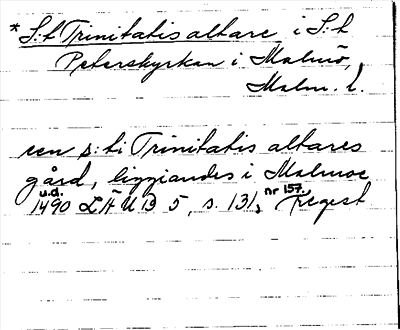 * S:t Trinitatis altare i S:t
Peterskyrkan i Malmö,
Malm. l.
een s:ti Trinitatis altares
gård, liggiandes i Malmoe
u.d. nr 157.
1490 LÄUB 5, s. 131, Regest